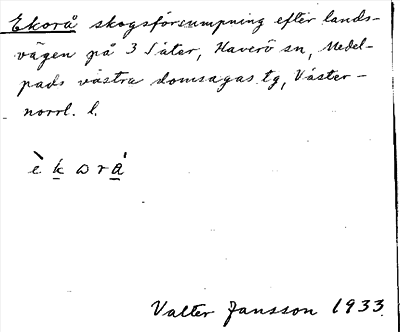 Ekorå skogsförsumpning efter lands-
vägen på 3 Såter, Haverö sn, Medel-
pads västra domsagas tg, Väster-
norrl. l.
è k ω r á
Valter Jansson 1933.